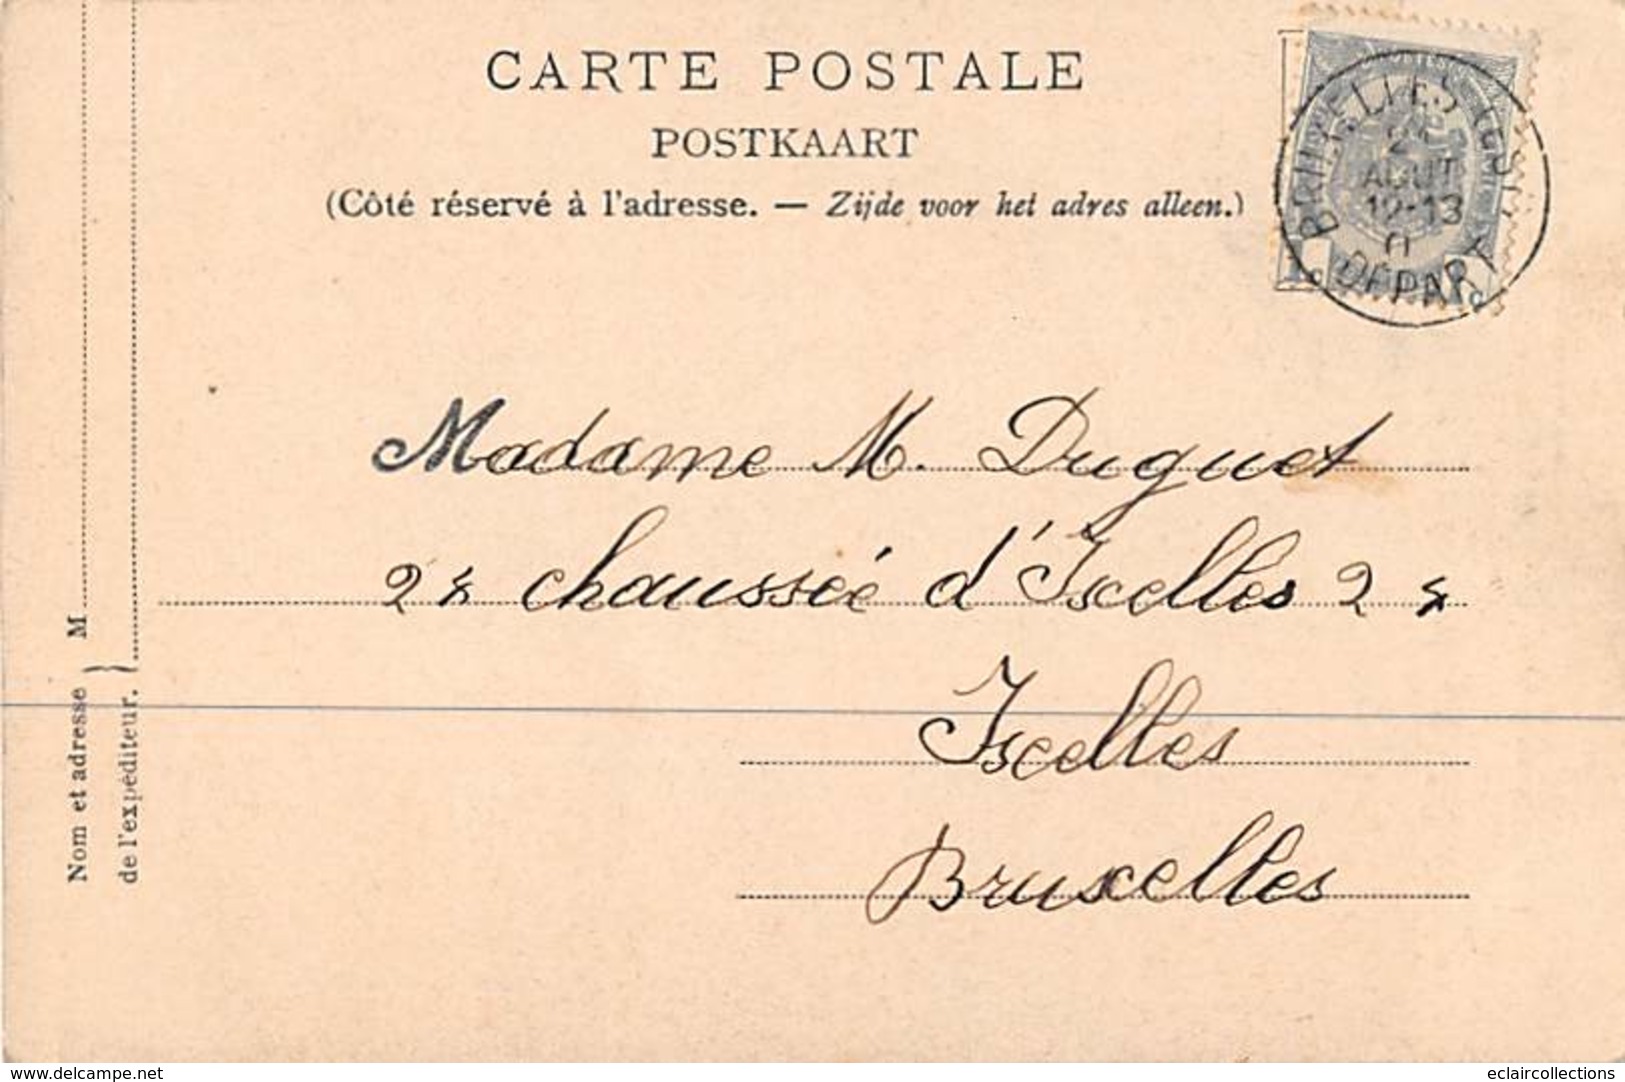 CARTE POSTALE
POSTKAART
(Côté réservé à l'adresse. — Zijde voor het adres alleen.)
BRUXELLES
AOUT
12-13
DÉPART
1c
1c
Madame M. Duguet
28 chausseé d'Ixelles 28
Ixelles
Bruxelles
Nom et adresse
de l'expéditeur. } M
delcampe.net
eclaircollections